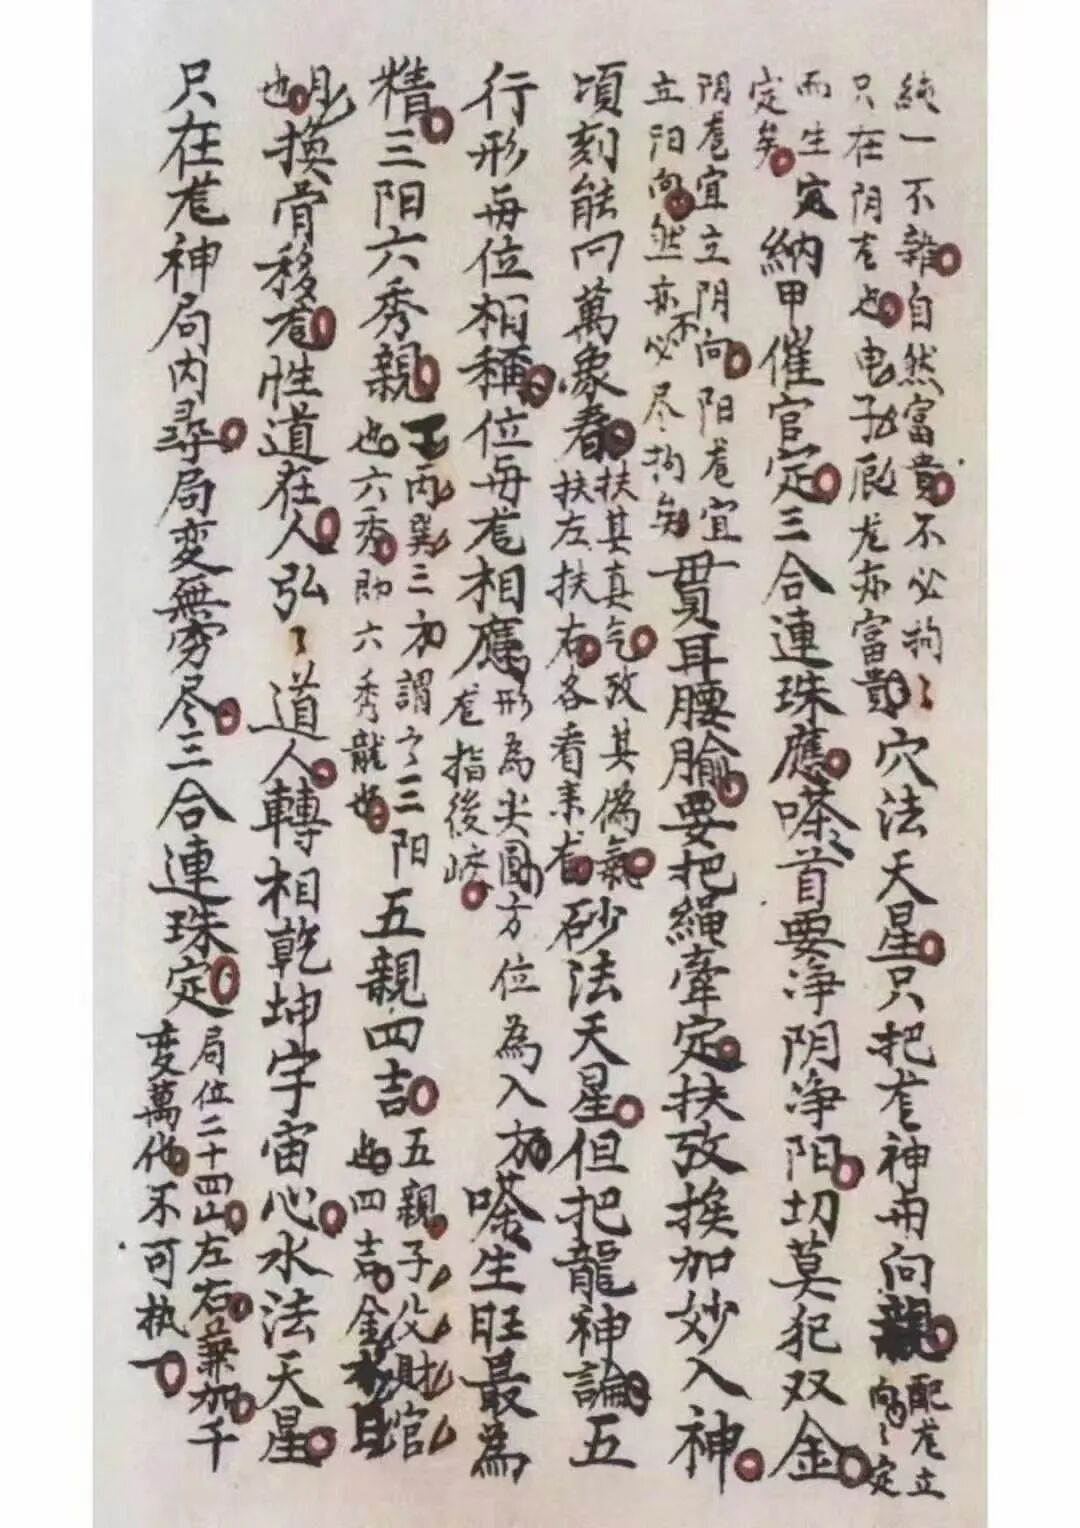 純一不雜自然富貴不必拘〻
只在阴龙也申子辰龙亦富貴
穴法天星只把龙神冊向親
配龙立
向〻定
而生寅
定矣
納甲催官定三合連珠應喺首要净阴净阳切莫犯双金
阴龙宜立阴向阳龙宜
立阳向然亦不必尽拘矣
貫耳腰腧要把繩牽定扶攷挨加妙入神
頃刻能回萬象春
扶其真气攷其偽氣
扶左扶右各看来龙
砂法天星但把龍神論五
行形毎位相稱位毎龙相應
形為尖圓方位為入方
龙指後嶐
喺生旺最為
精三阳六秀親
丁丙巽三方謂之三阳
也六秀即六秀龍也
五親四吉
五親子父財官
也四吉金水日
月
也
換骨移龙性道在人弘〻道人轉相乾坤宇宙心水法天星
只在龙神局内尋局变無穷尽三合連珠定
局位二十四山左右兼加千
变萬化不可执一